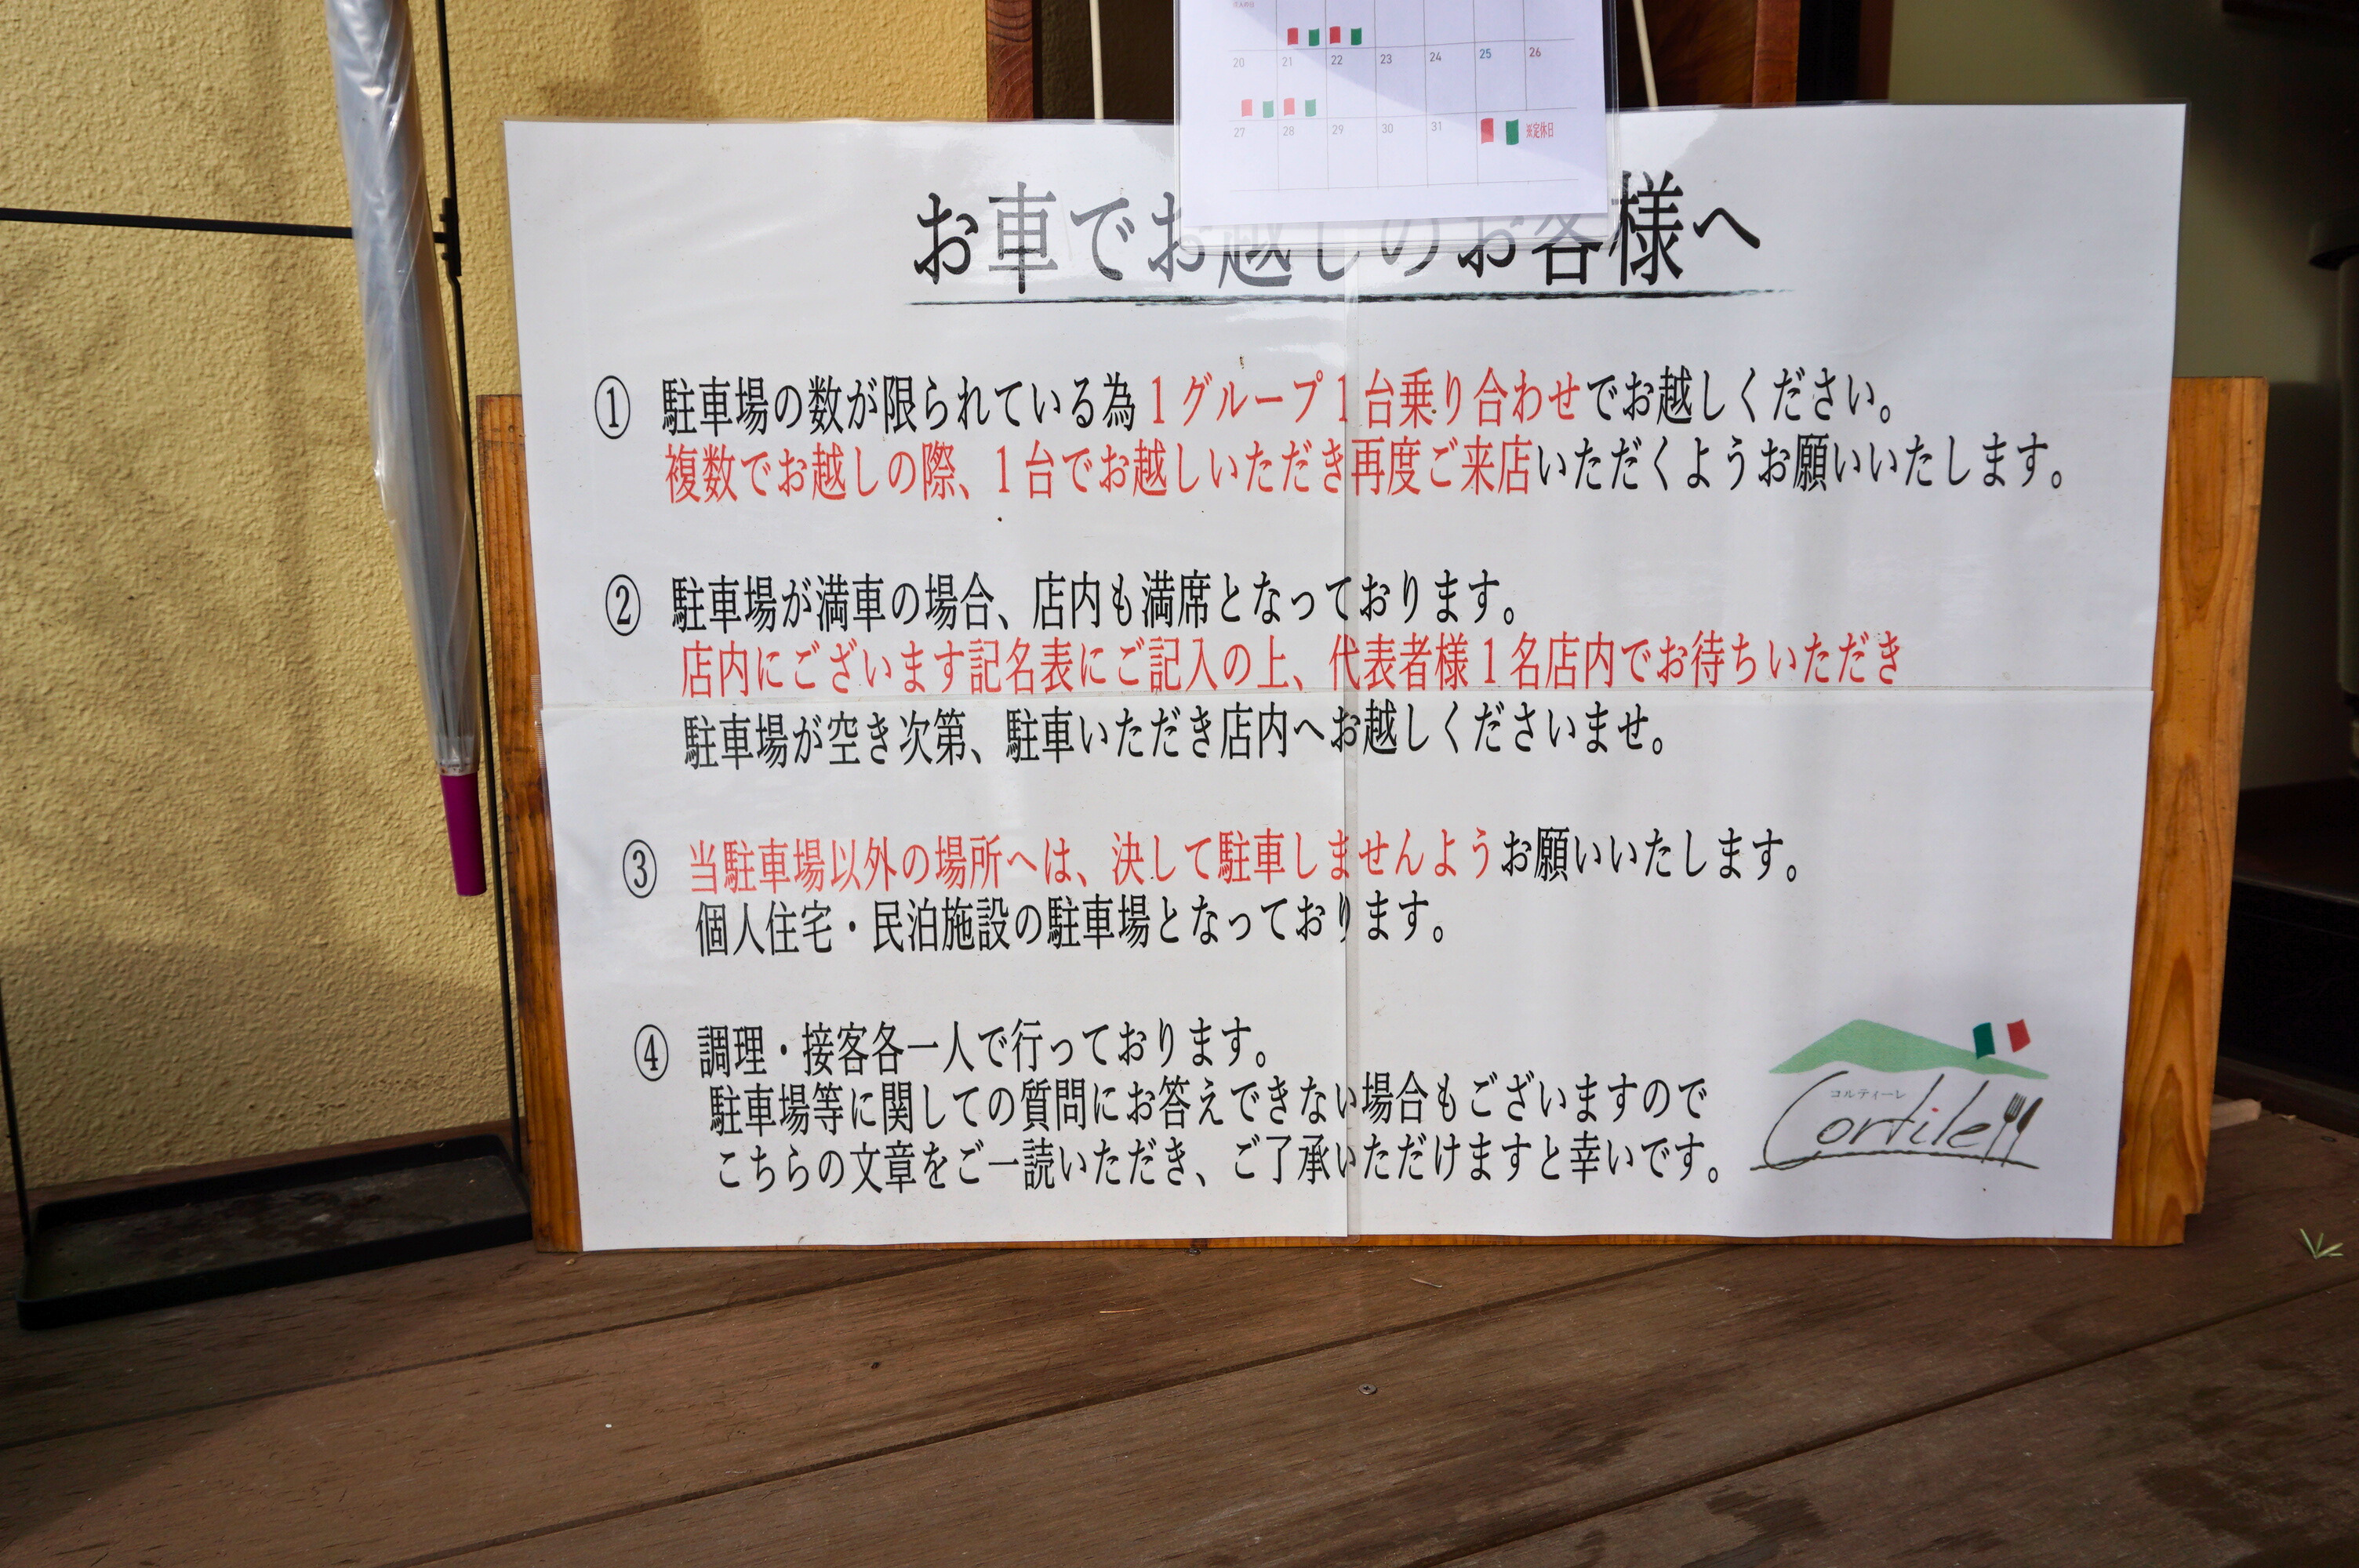 20 21 22 23 24 25 26
27 28 29 30 31 ※定休日
お車でお越しのお客様へ
① 駐車場の数が限られている為１グループ１台乗り合わせでお越しください。
複数でお越しの際、１台でお越しいただき再度ご来店いただくようお願いいたします。
② 駐車場が満車の場合、店内も満席となっております。
店内にございます記名表にご記入の上、代表者様１名店内でお待ちいただき
駐車場が空き次第、駐車いただき店内へお越しくださいませ。
③ 当駐車場以外の場所へは、決して駐車しませんようお願いいたします。
個人住宅・民泊施設の駐車場となっております。
④ 調理・接客各一人で行っております。
駐車場等に関しての質問にお答えできない場合もございますので
こちらの文章をご一読いただき、ご了承いただけますと幸いです。
コルティーレ
Cortile